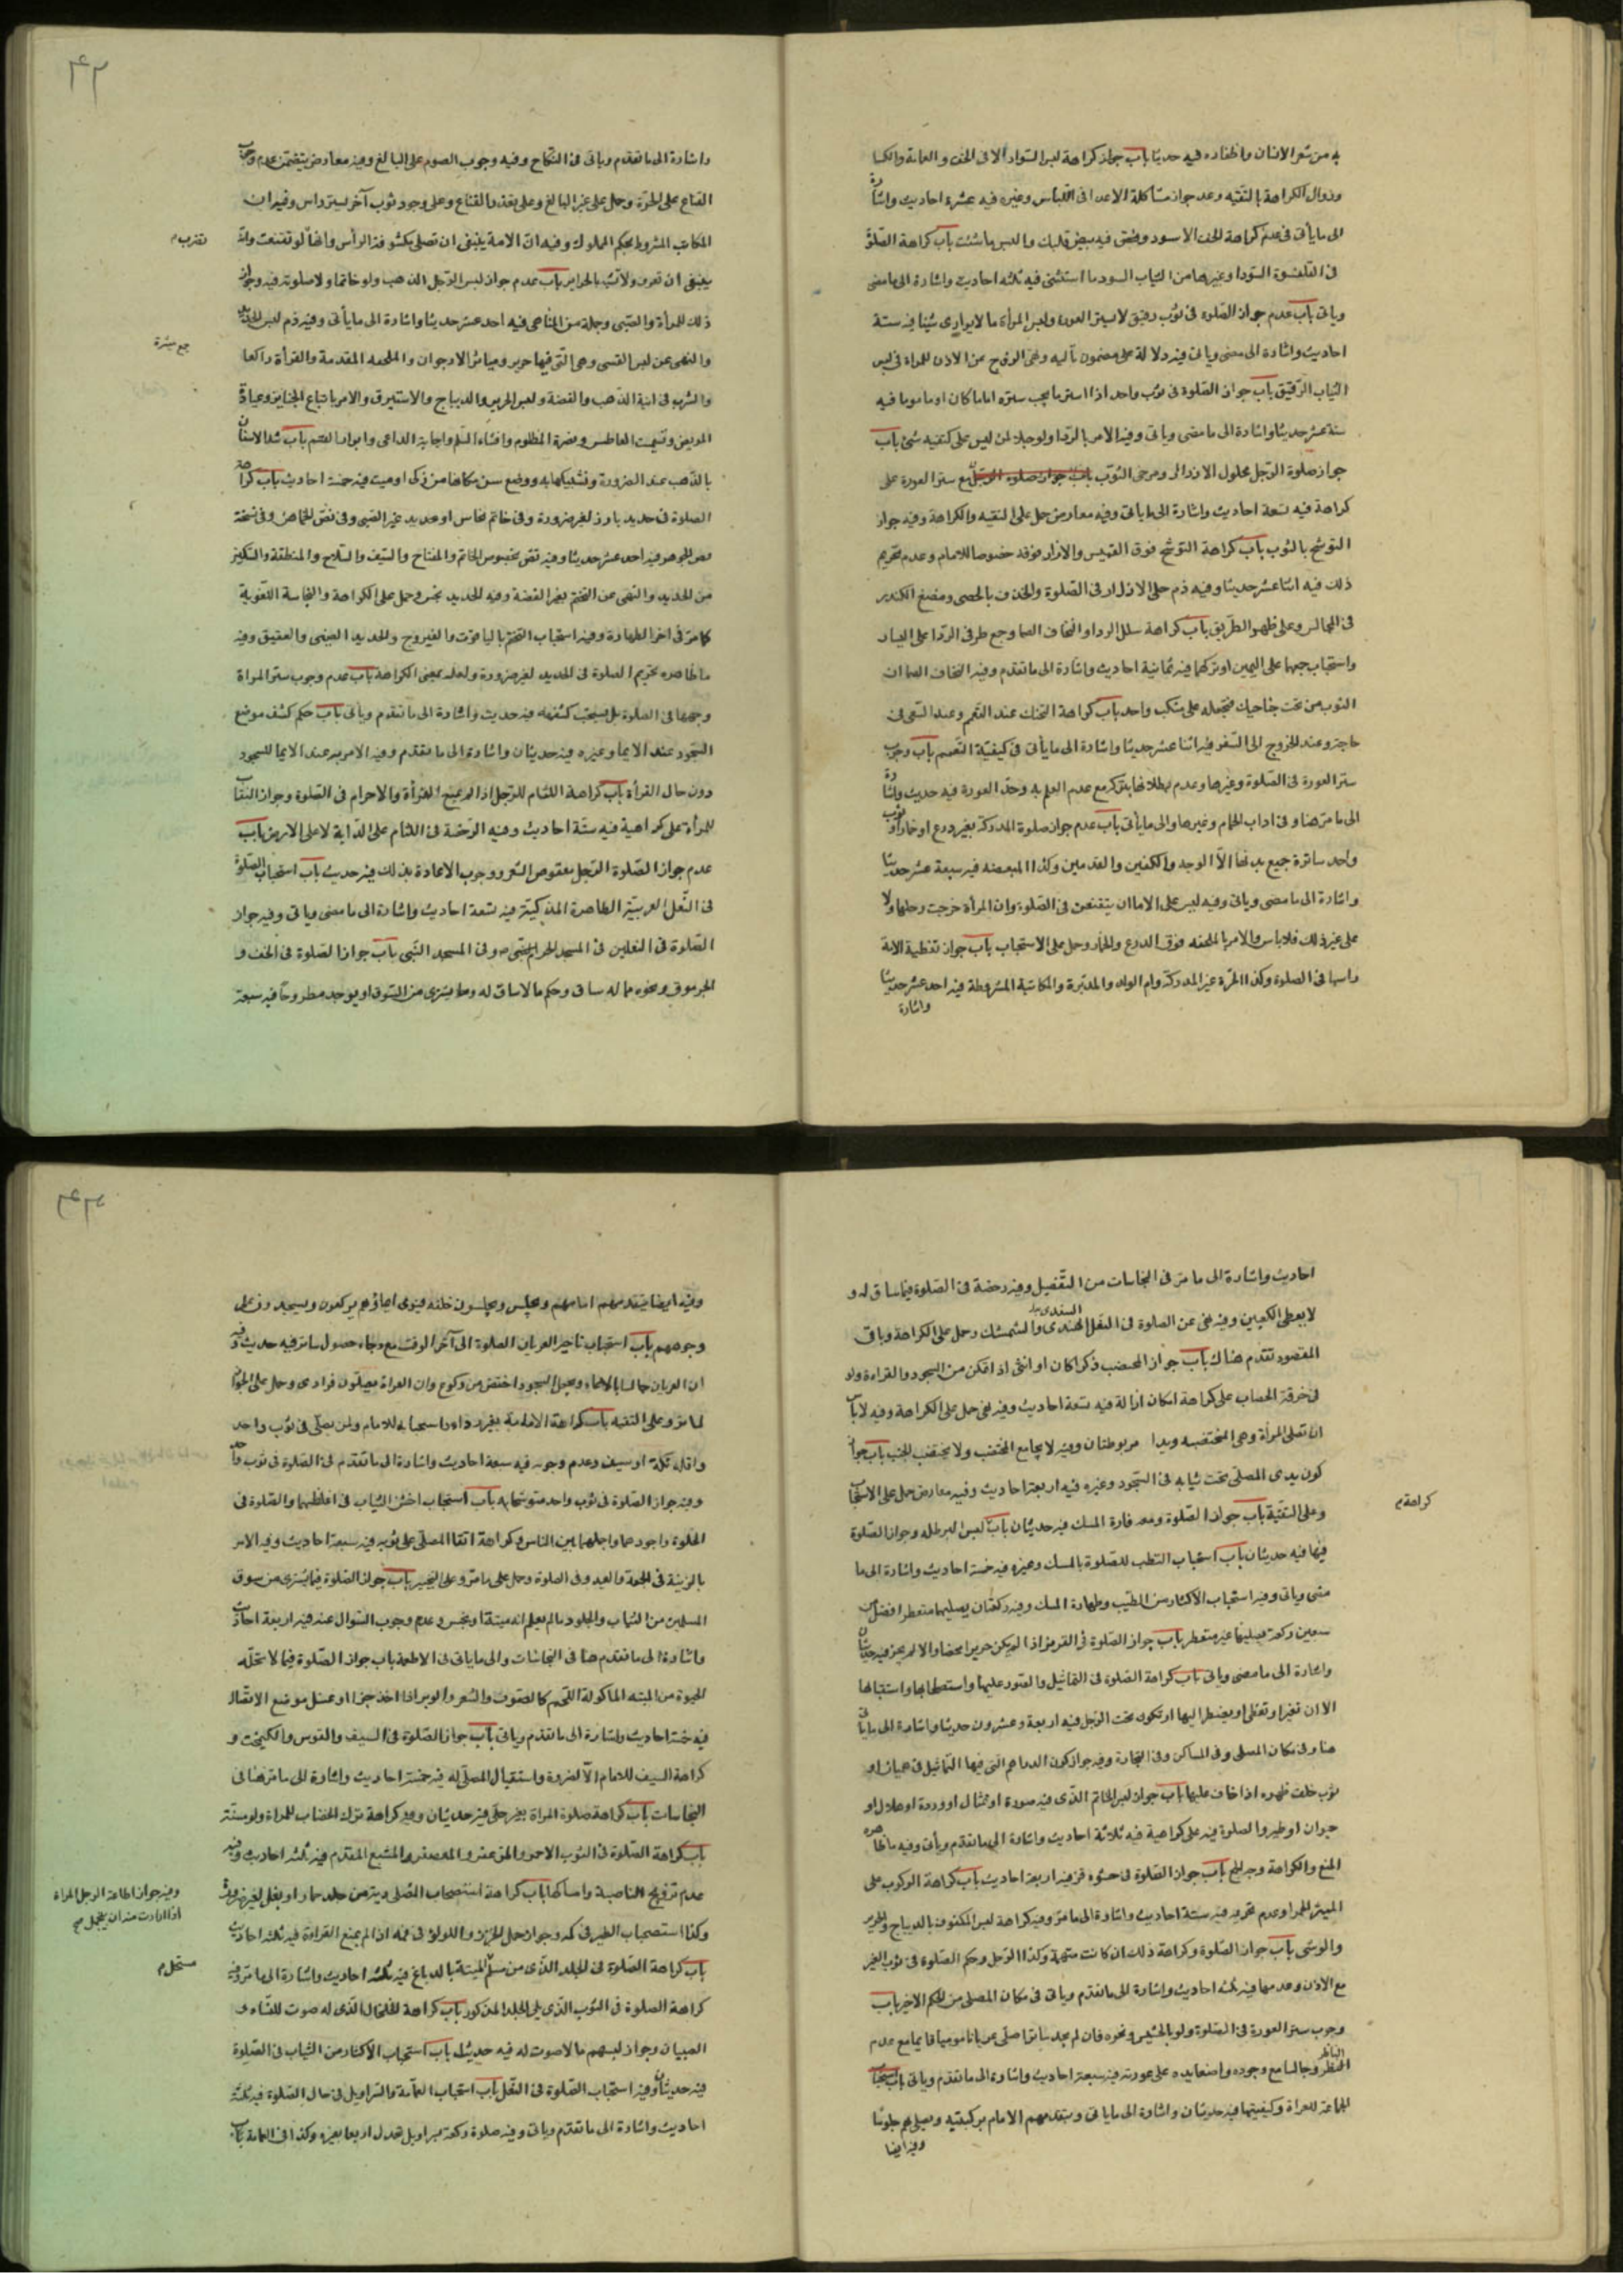 به من شعر الانسان واظفاره فيه حديثا باب جواز كراهة لبس السواد الا فى الخف والعمامة والكسا
وزوال الكراهة بالتقيه وعدم جواز مشاكلة الاعداء فى اللباس وغيره فيه عشرة احاديث واشارة
الى ما يأتى فى عدم كراهة الخف الاسود وفيه بيض قلبك والبس ما شئت باب كراهة الصلوة
فى القلنسوة السوداء وغيرها من الثياب السود ما استثنى فيه ثلثه احاديث واشارة الى ما مضى
وياتى باب عدم جواز الصلوة فى ثوب رقيق لا يستر العورة ولبس المرأة ما لا يوارى شيئا فيه ستة
احاديث واشارة الى ما مضى وياتى فيه دلالة على مضمون تاليه ونهى الزوج عن الاذن للمراة فى لبس
الثياب الرقيق باب جواز الصلوة فى ثوب واحد اذا ستر ما يجب ستره اماما كان او ماموما فيه
ستة عشر حديثا واشارة الى ما مضى وياتى وفيه الامر بالردا ولو حبلا لمن ليس على كتفيه شئ باب
جواز صلوة الرجل محلول الازرار ومرخى الثوب مع ستر العورة على
كراهة فيه تسعة احاديث واشارة الى ما ياتى وفيه معارض حمل على التقيه والكراهة وفيه جواز
التوشح بالثوب باب كراهة التوشح فوق القميص والازار فوقه خصوصا للامام وعدم تحريم
ذلك فيه اثنا عشر حديثا وفيه ذم حل الازرار فى الصلوة والخذف بالحصى ومضغ الكندر
فى المجالس وعلى ظهر الطريق باب كراهة سدل الرداء والتحاف الصما وجمع طرفى الردا على اليسار
واستحباب جمعها على اليمين او تركها فيه ثمانية احاديث واشارة الى ما تقدم وفيه التحاف الصما ان
الثوب من تحت جناحيك فتجعله على منكب واحد باب كراهة التحنك عند التعمم وعند السعى فى
حاجته وعند الخروج الى السفر فيه اثنا عشر حديثا واشارة الى ما يأتى فى كيفيّة التعمم باب وجوب
ستر العورة فى الصلوة وغيرها وعدم بطلانها بتركه مع عدم العلم به وحد العورة فيه حديث واشارة
الى ما مر هنا وفى اداب الحمام وغيرها والى ما يأتى باب عدم جواز صلوة المدركة بغير درع او خمار او ثوب
واحد ساترة جميع بدنها الّا الوجه والكفين والقدمين وكذا المبعضه فيه سبعة عشر حديثا
واشارة الى ما مضى وياتى وفيه ليس على الاماء ان يتقنعن فى الصلوة وان المرأة خرجت رجلها ولا
على غير ذلك فلا باس والامر بالملحفه فوق الدرع والخمار وحمل على الاستحباب باب جواز تغطية الامة
راسها فى الصلوة وكذا الحرة غير المدركة وام الولد والمدبّرة والمكاتبة المشروطة فيه احد عشر حديثا
واشارة
۴۲
واشارة الى ما تقدم وياتى فى النكاح وفيه وجوب الصوم على البالغ وفيه معارض يتضمن عدم وجوب
القناع على الحرة وحمل على غير البالغ وعلى تعذر القناع وعلى وجود ثوب آخر يستر راس وفيه ان
المكاتب المشروط بحكم المملوك وفيه انّ الامة ينبغى ان تصلى مكشوفة الرأس وانها لو تقنعت
ينبغى ان تعرف ولا تشبه بالحراير باب عدم جواز لبس الرجل الذهب ولو خاتما ولا صلوته فيه وجواز
ذلك للمرأة والصبى وجملة من المناهى فيه احد عشر حديثا واشارة الى ما يأتى وفيه ذم لبس الحديد
والنهى عن لبس القسى وهى الّتى فيها حرير ومياثر الارجوان والملحفه المقدمة والقرأة راكعا
والشرب فى انية الذهب والفضة ولبس الحرير والديباج والاستبرق والامر باتباع الجنايز وعيادة
المريض وتسميت العاطس ونصرة المظلوم وافشاء السّلم واجابة الداعى وابرار القسم باب شد الاسنان
بالذهب عند الضرورة وتشبيكها به ووضع سن مكانها من زكى او ميت فيه خمسة احاديث باب كراهة
الصلوة فى حديد بارز لغير ضرورة وفى خاتم نحاس او حديد غير الصينى وفى نقش الخماهن وفى نسخة
فص الجوهر فيه احد عشر حديثا وفيه نقض بخصوص الخاتم والمفتاح والسّيف والسّلاح والمنطقة والسّكين
من الحديد والنهى عن التختم بغير الفضة وفيه الحديد نجس وحمل على الكراهة والنجاسة اللغوية
كما مر فى اخر الطهارة وفيه استحباب التختم بالياقوت والفيروج والحديد الصينى والعقيق وفيه
ما ظاهره تحريم الصلوة فى الحديد لغير ضرورة ولعله بمعنى الكراهة باب عدم وجوب ستر المراة
وجهها فى الصلوة بل يستحب كشفه فيه حديث واشارة الى ما تقدم ويأتى باب حكم كشف موضع
السجود عند الايما وغيره فيه حديثان واشارة الى ما تقدم وفيه الامر به عند الايما للسجود
دون حال القرأة باب كراهة اللثام للرجل اذا لم يمنع القرأة والاحرام فى الصلوة وجواز النقاب
للمرأة على كراهية فيه ستّة احاديث وفيه الرخصة فى اللثام على الدّابة لا على الارض باب
عدم جواز الصلوة الرجل معقوص الشعر ووجوب الاعادة بذلك فيه حديث باب استحباب الصلوة
فى النّعل العربيّة الطاهرة المذكية فيه تسعة احاديث واشارة الى ما مضى وياتى وفيه جواز
الصلوة فى النعلين فى المسجد الحرام وفى المسجد النّبى باب جواز الصلوة فى الخف و
الجرموق ونحوه مما له ساق وحكم ما لا ساق له وما يشترى من السّوق او يوجد مطروحا فيه سبعة
جمع ميثرة
احاديث واشارة الى ما مر فى النجاسات من التّفصيل وفيه رخصة فى الصلوة فيما ساق له و
لا يغطى الكعبين وفيه نهى عن الصلوة فى النعل السندى الهندى والشمشك وحمل على الكراهة وباقى
المقصود تقدم هناك باب جواز المختضب ذكرا كان او انثى اذا تمكن من السجود والقراءة ولو
فى خرقة الخضاب على كراهة امكان ازالة فيه تسعة احاديث وفيه نهى حمل على الكراهة وفيه لا باس
ان تصلى المرأة وهى المختضبه ويدا مربوطتان وفيه لا يجامع المختضب ولا يختضب الجنب باب جواز
كون يدى المصلّى تحت ثيابه فى السّجود وغيره فيه اربعة احاديث وفيه معارض حمل على الاستحباب
وعلى التقيّة باب جواز الصّلوة ومعه فارة المسك فيه حديثان باب لبس البرطله وجواز الصّلوة
فيها فيه حديثان باب استحباب التطيب للصّلوة بالمسك وغيره فيه خمسة احاديث واشارة الى ما
مضى وياتى وفيه استحباب الاكثار من الطّيب وطهارة المسك وفيه ركعتان يصليهما متعطر افضل من
سبعين ركعة يصليها غير متعطر باب جواز الصّلوة فى القرمز اذا لم يكن حريرا محضا والا لم يجز فيه حديثان
واشارة الى ما مضى وياتى باب كراهة الصلوة فى التماثيل والصور عليها واستصحابها واستقبالها
الا ان تغير او تغطى او يضطر اليها او تكون تحت الرّجل فيه اربعة وعشرون حديثا واشارة الى ما ياتى
هنا وفى مكان المصلى وفى المساكن وفى التجارة وفيه جواز كون الدراهم التى فيها التّماثيل فى هميان او
ثوب خلف ظهره اذا خاف عليها باب جواز لبس الخاتم الّذى فيه صورة او تمثال او وردة او هلال او
حيوان او طير والصلوة فيه على كراهية فيه ثلاثة احاديث واشارة الى ما تقدم ويأتى وفيه ما ظاهره
المنع والكراهة وجه الجمع باب جواز الصّلوة فى حشوه قز فيه اربعة احاديث باب كراهة الركوب على
الميثر الحمراء وعدم تحريمه فيه ستة احاديث واشارة الى ما مرّ وفيه كراهة لبس المكفوف بالديباج والحرير
والوشى باب جواز الصّلوة وكراهة ذلك ان كانت متهمة وكذا الرّجل وحكم الصّلوة فى ثوب الغير
مع الاذن وعدمها فيه ثلثه احاديث واشارة الى ما تقدم وياتى فى مكان المصلى من الحكم الاخير باب
وجوب ستر العورة فى الصّلوة ولو بالحشيش ونحوه فان لم يجد ساترا صلّى عريانا موميا قايما مع عدم
الناظر وجالسا مع وجوده واضعا يده على عورته فيه سبعة احاديث واشارة الى ما تقدم وياتى باب استحباب
الجماعة للعراة وكيفيتها فيه حديثان واشارة الى ما ياتى ويتقدمهم الامام بركبتيه ويصلى بهم جلوسا
وفيه ايضا
كراهة م
۴۳
وفيه ايضا يتقدمهم امامهم ويجلس ويجلسون خلفه فيومى ايماؤهم يركعون ويسجدون على
وجوههم باب استحباب تأخير العريان الصلوة الى آخر الوقت مع رجاء حصول ساتر فيه حديث وفيه
ان العريان جالسا بالايماء ويجعل السجود اخفض من ركوع وان العراة يصلّون فرادى وحمل على الجواز
لما مر وعلى التقيه باب كراهة الامامة بغير رداء واستحبابه للامام ولمن يصلّى فى ثوب واحد
واقله تكّة او سيف وعدم وجوبه فيه سبعة احاديث واشارة الى ما تقدم فى الصّلوة فى ثوب واحد
وفيه جواز الصّلوة فى ثوب واحد متوشحا به باب استحباب اخشن الثياب فى اغلظها والصّلوة فى
الخلوة واجودها واجملها بين الناس وكراهة اتقا المصلّى على ثوبه فيه سبعة احاديث وفيه الامر
بالزينة فى الجمعة والعيد وفى الصلوة وحمل على ما مرّ وعلى التخيير باب جواز الصّلوة فيما يشترى من سوق
المسلمين من الثياب والجلود ما لم يعلم انه ميتة او نجس وعدم وجوب السّوال عنه فيه اربعة احاديث
واشارة الى ما تقدم هنا فى النجاسات والى ما ياتى فى الاطعمة باب جواز الصّلوة فيما لا تحلّه
الحيوة من الميتة الماكولة اللّحم كالصّوف والشعر والوبر اذا اخذ جزا او غسل موضع الاتصال
فيه خمسة احاديث واشارة الى ما تقدم وياتى باب جواز الصّلوة فى السيف والقوس والكيمخت و
كراهة السيف للامام الّا لضرورة واستقبال المصلّى له فيه خمسة احاديث واشارة الى ما مر هنا فى
النجاسات باب كراهة صلوة المراة بغير حلّى فيه حديثان وفيه كراهة ترك الخضاب للمراة ولو مسنّة
باب كراهة الصّلوة فى الثوب الاحمر والمزعفر والمعصفر والمشبع المفدم فيه ثلثه احاديث وفيه
عدم تزويج الناصبة وامساكها باب كراهة استصحاب المصلى دبة من جلد حمار او بغل لغير ضرورة
وكذا استصحاب الطير فى كمه وجواز حمل الخرز واللولؤ فى فمه اذا لم يمنع القراءة فيه ثلثه احاديث
باب كراهة الصّلوة فى الجلد الذّى من مسلم الميتة بالدباغ فيه ثلثه احاديث واشارة الى ما مر وفيه
كراهة الصلوة فى الثوب الذّى يلى الجلد المذكور باب كراهة الخلخال الذّى له صوت للنّساء و
الصبيان وجواز لبسهم ما لا صوت له فيه حديث باب استحباب الاكثار من الثياب فى الصّلوة
فيه حديثان وفيه استحباب الصّلوة فى النّعل باب استحباب العمّامة والسّراويل فى حال الصّلوة فيه ثلثه
احاديث واشارة الى ما تقدم وياتى وفيه صلوة ركعة بسراويل تعدل اربعا بغيره وكذا فى العمامة باب
وفيه جواز اطاعة الرجل المراة
اذا ارادت منه ان يتجمل صح
مستحل م